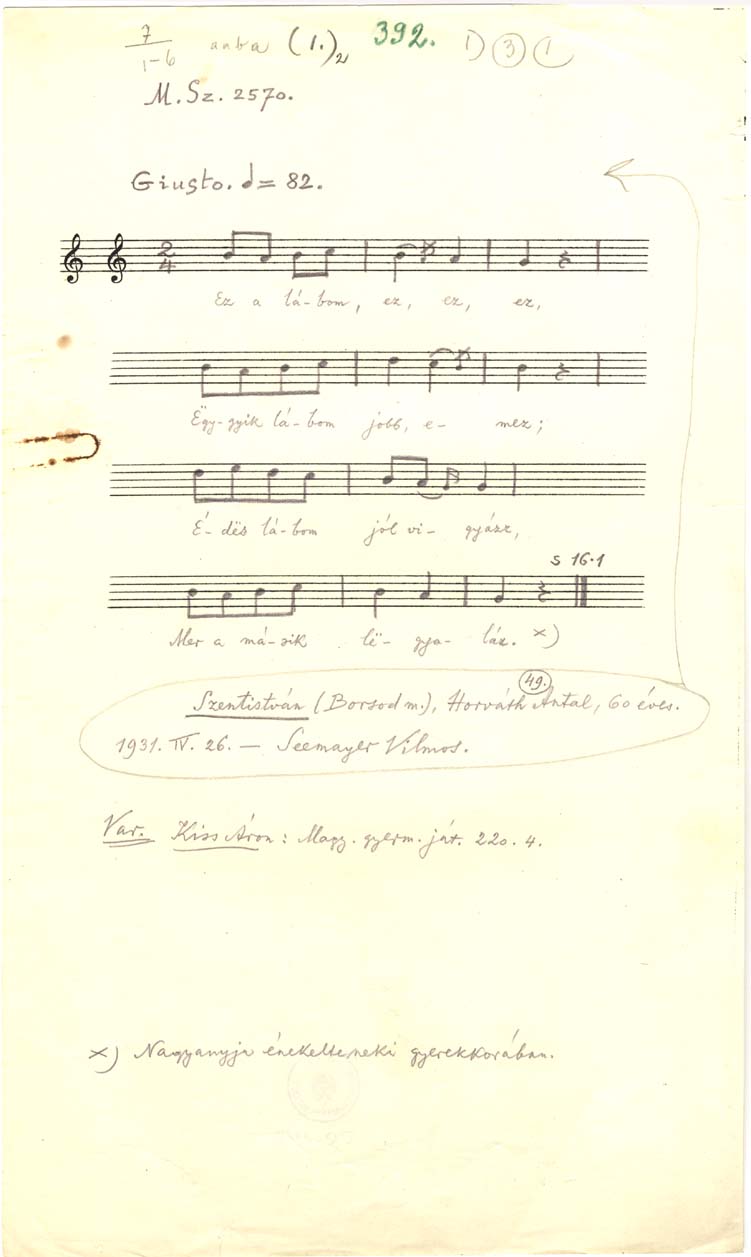 7/1-6 aaba (1.)2 392. 1) 3 1
M. Sz. 2570.
Giusto. 𝅗𝅥 = 82.
2/4
Ez a lá-bom, ez, ez, ez,
Ëgy-gyik lá-bom jobb, e- mez;
É-dës lá-bom jól vi- gyázz,
s 16·1
Mer a má-sik lë- gya- láz. x)
49.
Szentistván (Borsod m.), Horváth Antal, 60 éves.
1931. IV. 26. — Seemayer Vilmos.
Var. Kiss Áron: Magy. gyerm. ját. 220. 4.
x) Nagyanyja énekelte neki gyerekkorában.